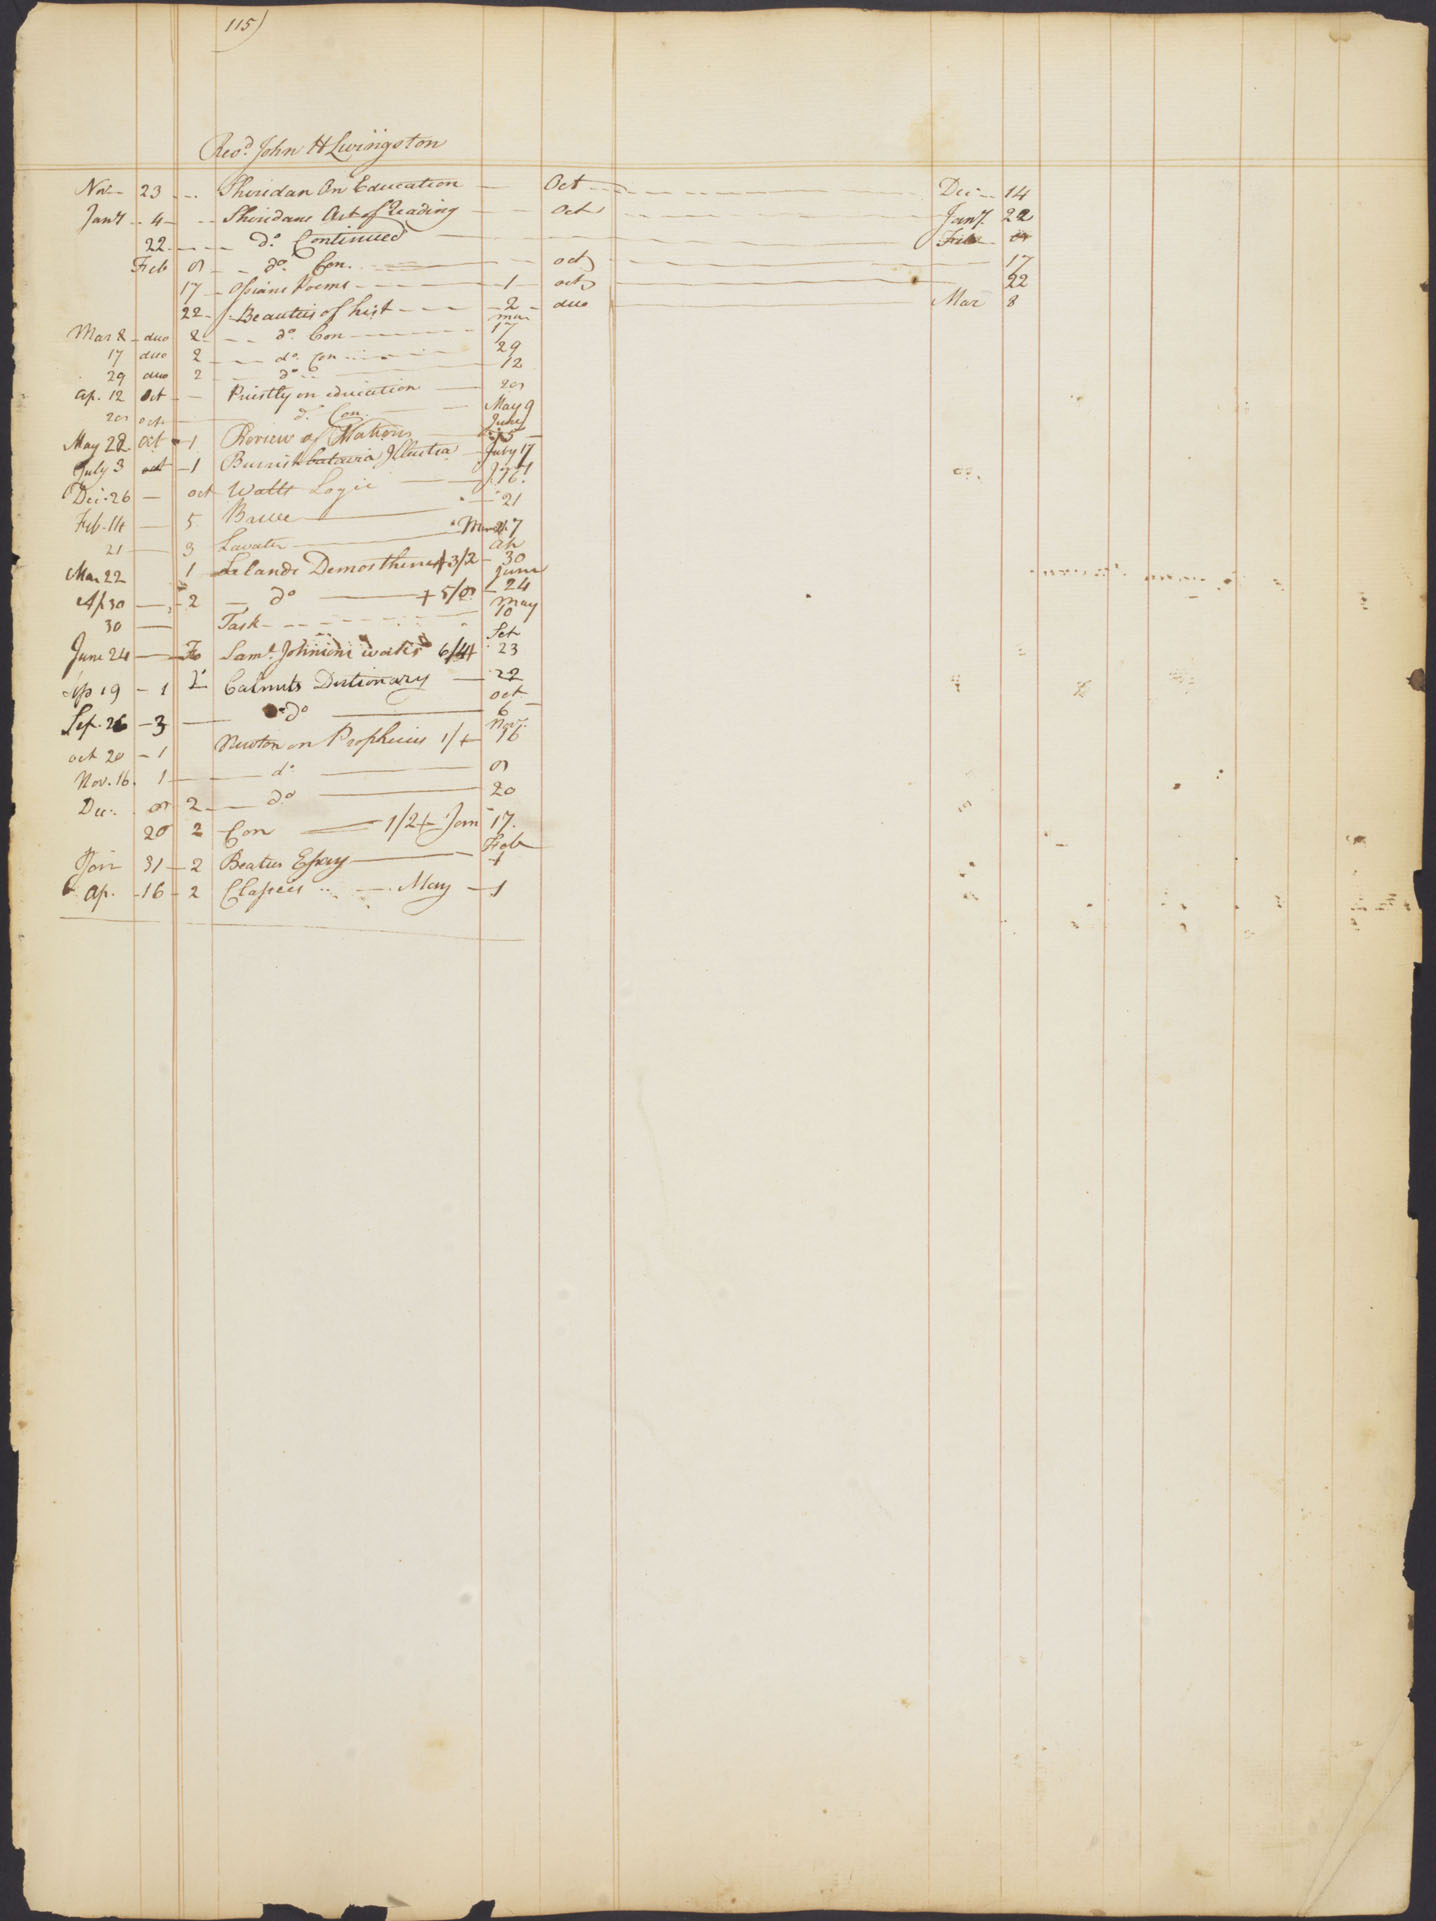 115)
Revd. John H Livingston
Nov - 23 Sheridan On Education Oct Dec - 14
Jany - 4 Sheridans Art of Reading Oct Jany. 22
22 do. Continued Feb 8
Feb 8 do. Con. oct 17
17 Ossians Poems 1 oct 22
22 Beauties of hist 2 duo Mar 8
Mar 8 duo 2 do Con mar 17
17 duo 2 do. Con 29
29 duo 2 do 12
Ap. 12 oct Priestly on education 28
28 oct do Con. May 9
May 28 oct 1 Review of Nations June
July 3 oct 1 Burrish batavia Illustra July 17
Dec. 26 oct Watts Logic 16
Feb. 14 5 Bruce 21
21 3 Lavater March 7
Mar 22 1 Lelands Demosthenes + 3/2 Ap 30
Ap 30 2 do + 5/8 June 24
30 Task May 10
June 24 Fo Saml. Johnsons works 6/4+ Set 23
Sep 19 - 1 Calmets Dictionary 22
Sep. 26 - 3 do oct 6
oct 20 - 1 Newton on Prophecies 1/+ Novr. 16
Nov. 16. 1 do 8
Dec. 8 2 do 20
20 2 Con 1/2+ Jan 17.
Jan 31 - 2 Beaties Essay Feb
Ap. - 16 - 2 May - 1